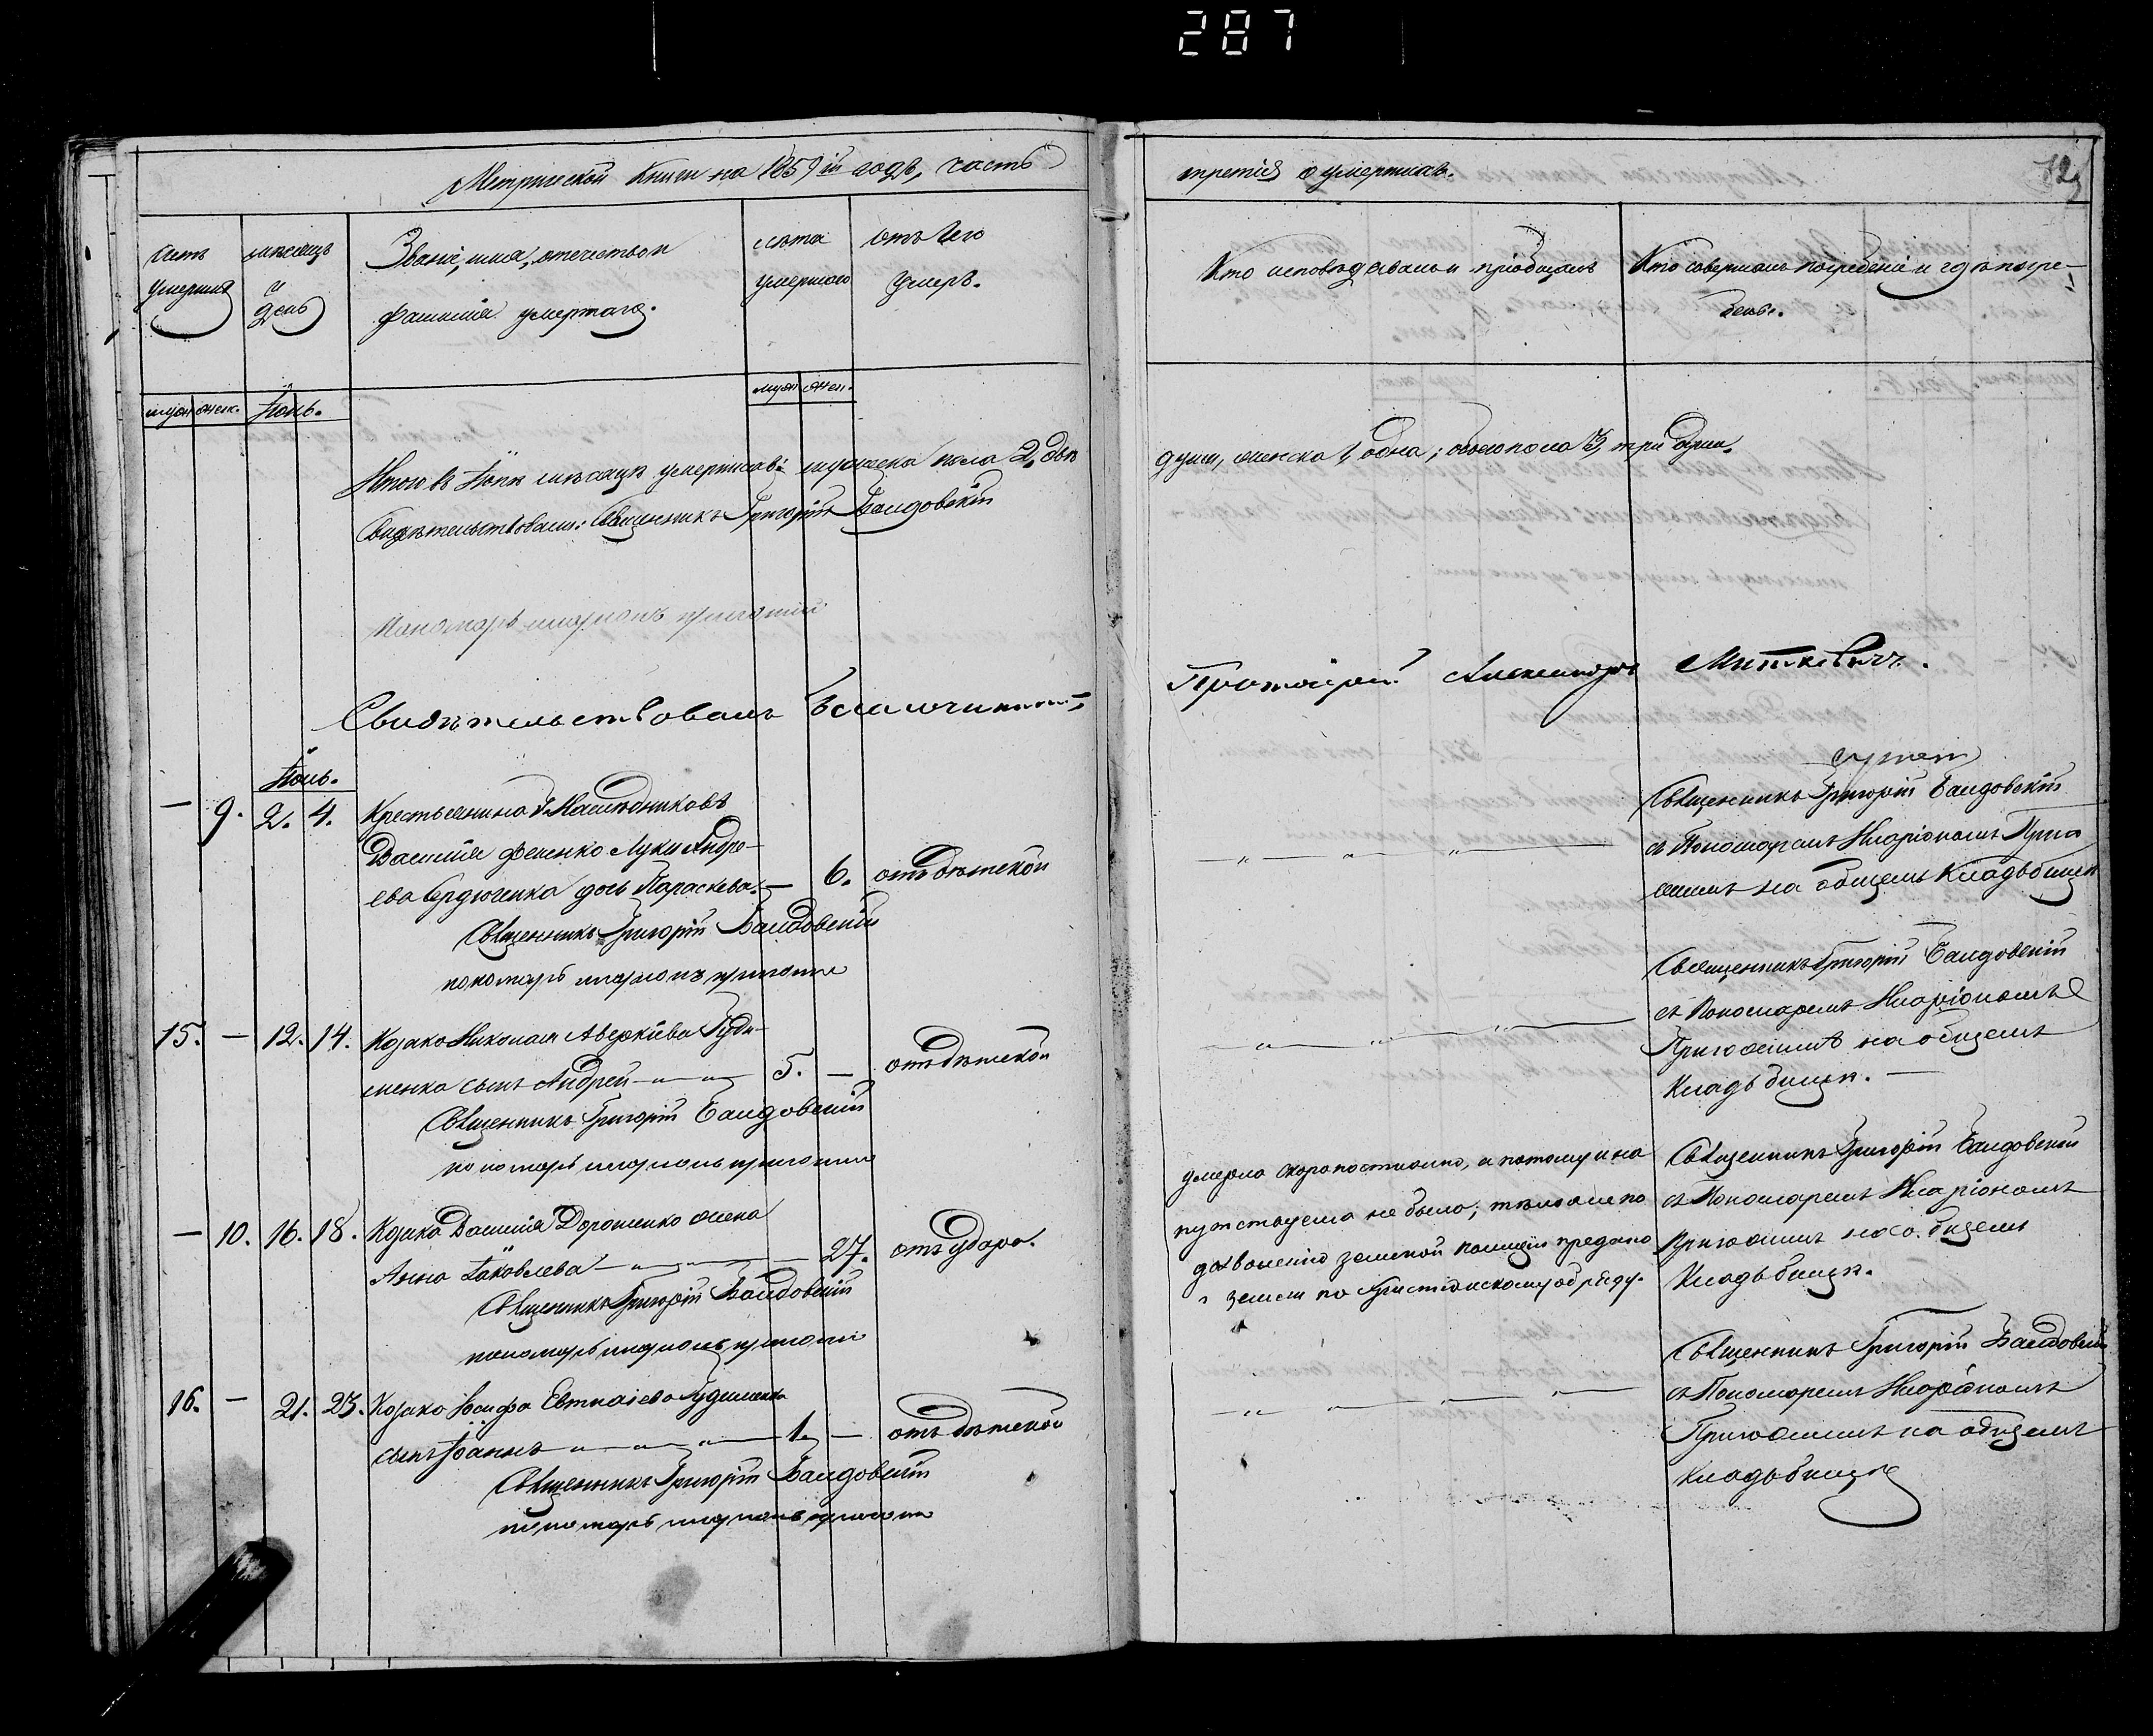 287
Метрической Книги на 1859й годъ, часть
третія о умершихъ.
Счетъ умершихъ
мѣсяцъ и день
Званіе, имя, отчество и фамилія умершаго.
лѣта умершаго
отъ чего умеръ.
Кто исповѣдывалъ и пріобщалъ
Кто совершалъ погребеніе и гдѣ погре-
бенъ.
муж жен.
Іюнь.
муж жен.
Итого въ Іюнѣ мѣсяцѣ умершихъ: мужеска пола 2, двѣ
души, женска 1, одна; обоего пола 3, три души.
Свидѣтельствовали: Священникъ Григорій Балдовскій
Пономарь иларіонъ
Свидѣтельствовалъ Благочинный,
Протоіерей Александръ Миткевичъ.
Іюль.
— 9. 2. 4. Крестьянина Г. Наслѣдниковъ
Василія Фененко Луки Андре-
ева Сердюченка дочь Параскева — 6. отъ дѣтской
Священникъ Григорій Балдовскій
пономарь иларіонъ
Священникъ Григорій Балдовскій
съ Пономаремъ Иларіономъ Приго
жимъ на общемъ Кладбищѣ
15. — 12. 14. Козака Николая Аверкіева Гуди-
менка сынъ Андрей 5. — отъ дѣтской
Священникъ Григорій Балдовскій
пономарь иларіонъ
Священникъ Григорій Балдовскій
съ Пономаремъ Иларіономъ
Пригожимъ на общемъ
Кладбищѣ. —
— 10. 16. 18. Козака Василія Дорошенко жена
Анна Іаковлева — 27. отъ удара.
Священникъ Григорій Балдовскій
пономарь иларіонъ
умерла скоропостижно, а потому и на
путствуема не была; тѣло же по
дозволенію земской полиціи предано
земли по христіанскому обряду.
Священникъ Григорій Балдовскій
съ Пономаремъ Иларіономъ
Пригожимъ на общемъ
Кладбищѣ.
16. — 21. 23. Козака Іосифа Евтихіева Гудименка
сынъ Іоаннъ 1. — отъ дѣтской
Священникъ Григорій Балдовскій
пономарь иларіонъ
Священникъ Григорій Балдовскій
съ Пономаремъ Иларіономъ
Пригожимъ на общемъ
Кладбищѣ